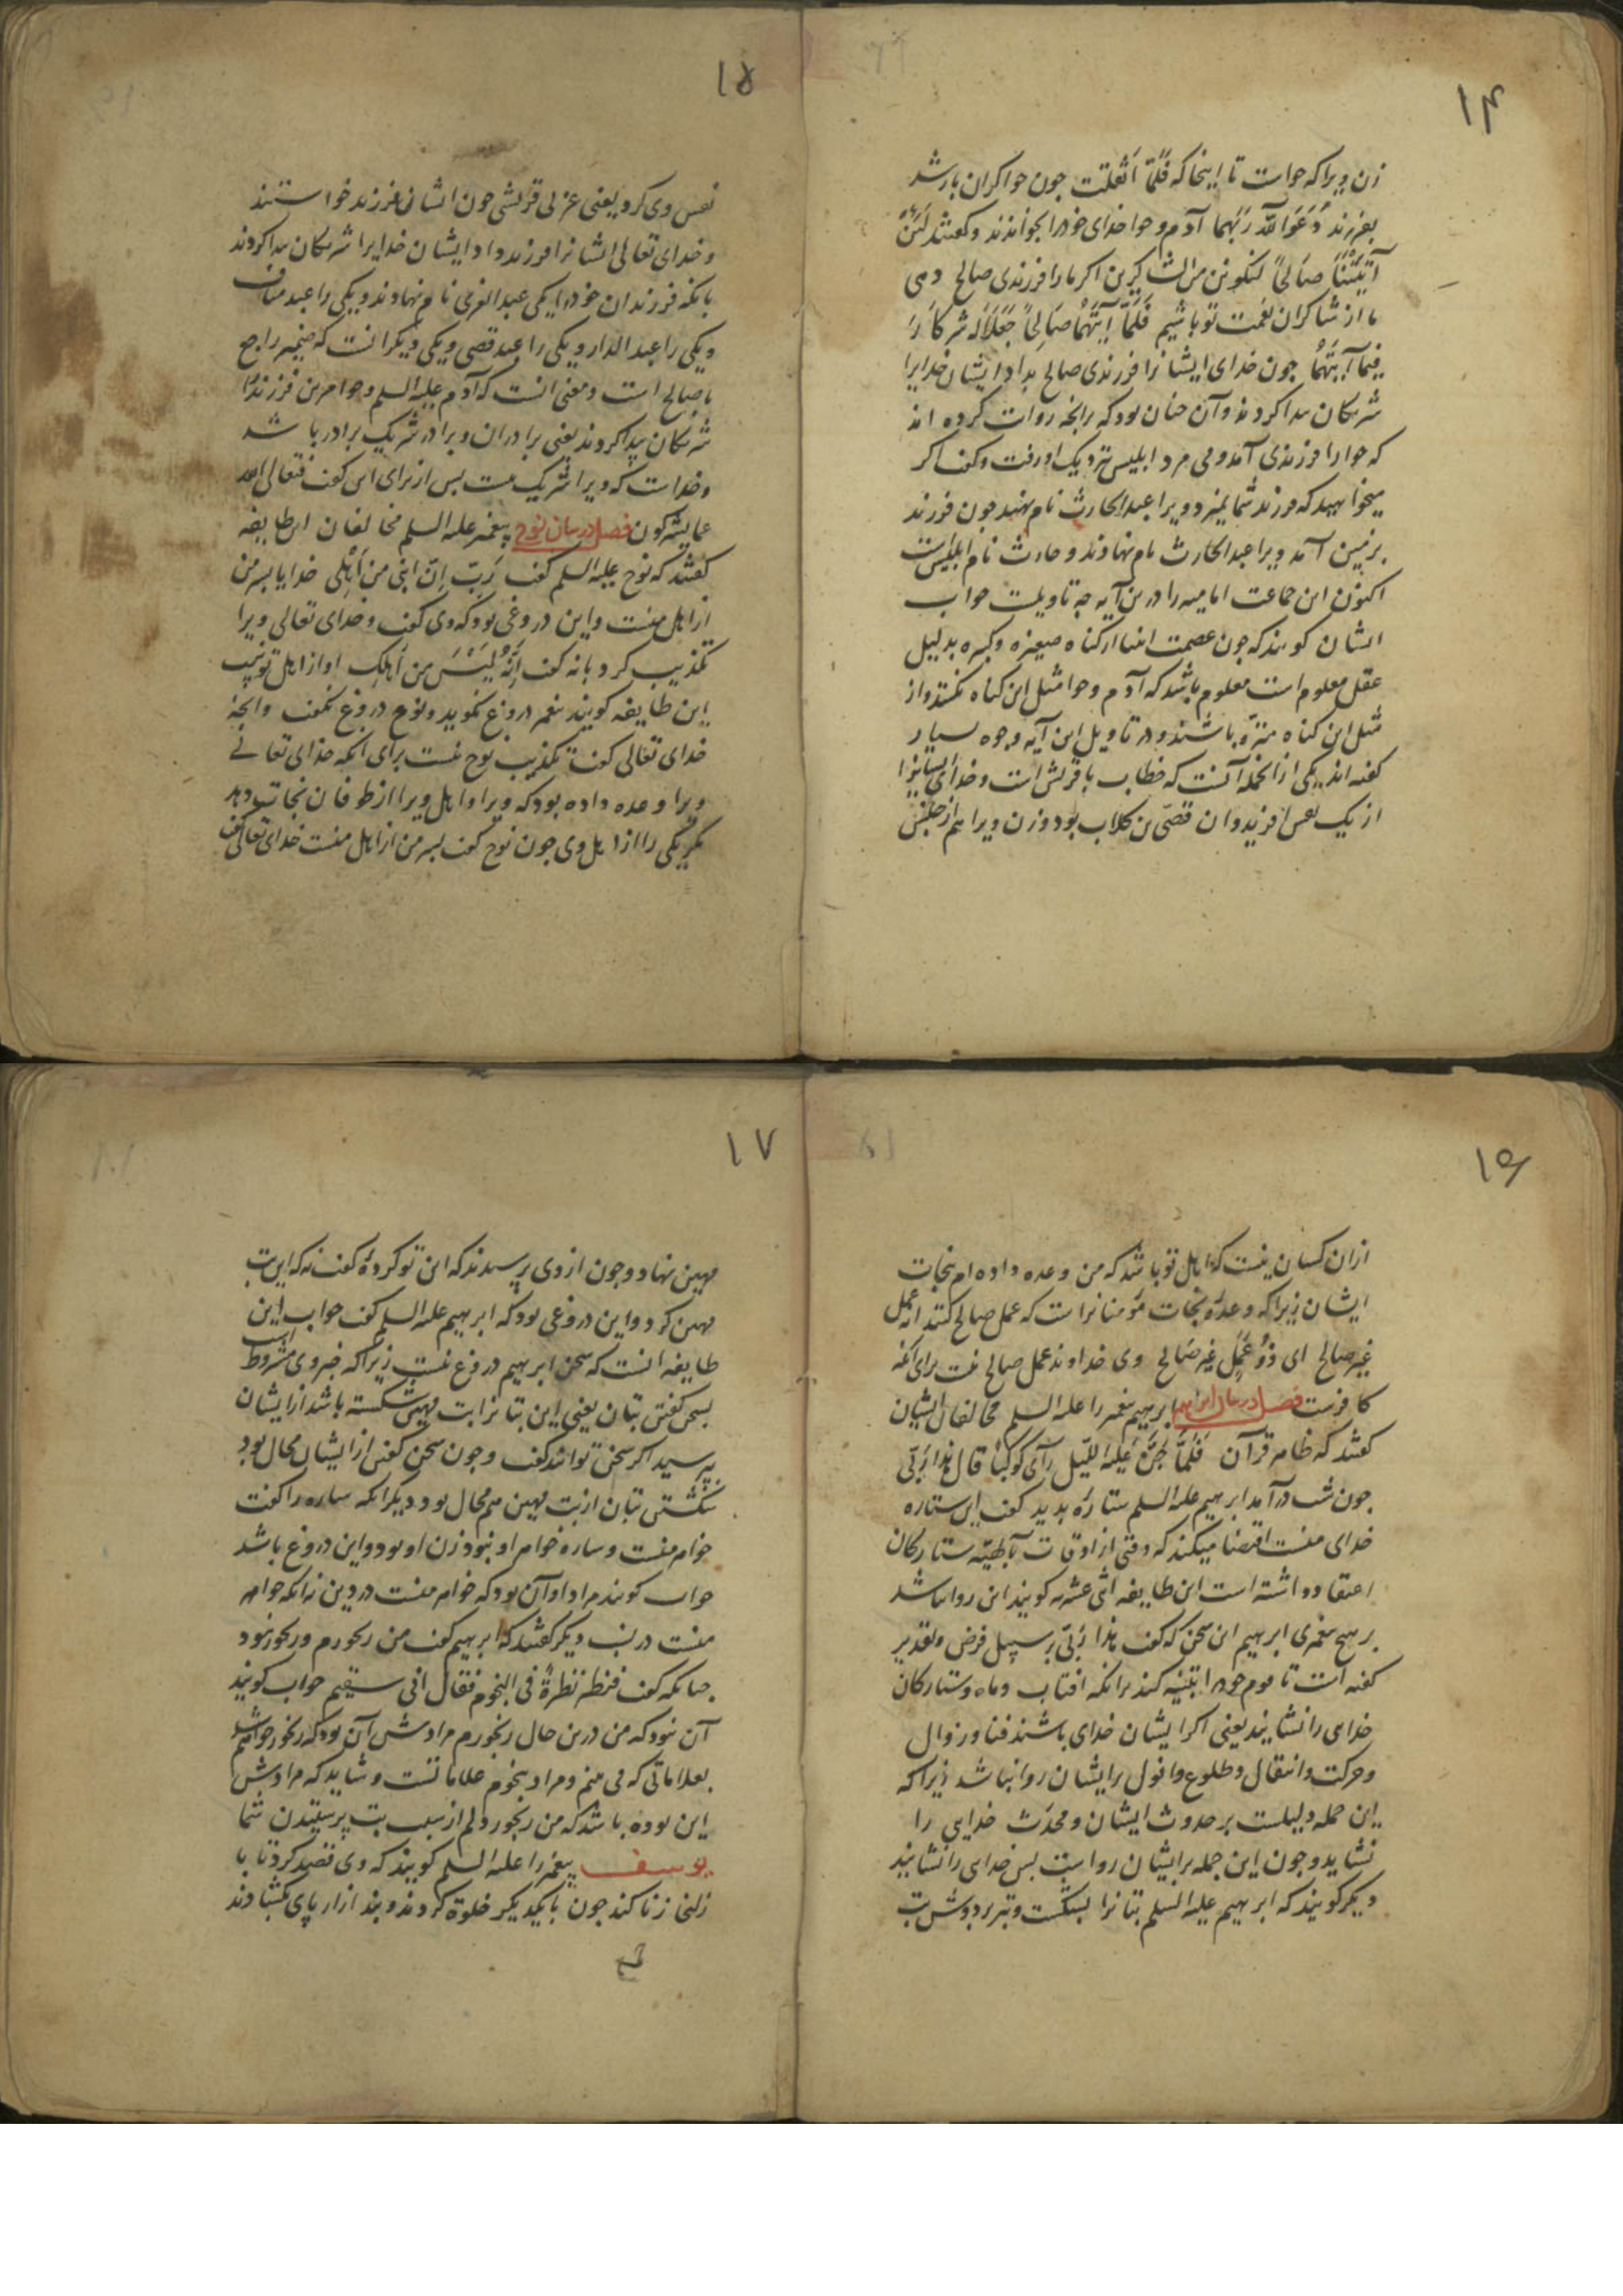 ۱۴
زن ویرا که حواست تا اینجا که فَلَمّا اَثْقَلَت چون حوا کران بار شد
بفرزند دَعَوَا اللّه رَبَّهُما آدم و حوا خدای خود را بخواندند و کفتند لَئِن
آتَیْتَنا صالحاً لنکونن من الشاکرین اکر ما را فرزندی صالح دهی
ما از شاکران نعمت تو باشیم فَلَمّا آتیهُما صالحاً جَعَلا لَهُ شرکاءَ
فیما آتیهُما چون خدای ایشانرا فرزندی صالح بداد ایشان خدایرا
شریکان پیدا کردند و آن چنان بود که برانچه روایت کرده اند
که حوا را فرزندی آمد و می مرد ابلیس نزدیک او رفت و کفت اکر
میخواهید که فرزند شما نمیرد ویرا عبد الحارث نام نهید چون فرزند
بزمین آمد ویرا عبد الحارث نام نهادند و حارث نام ابلیس است
اکنون این جماعت امامیه را درین آیه چه تاویلست جواب
ایشان کویند که چون عصمت انبیا از کناه صغیره و کبیره بدلیل
عقل معلوم است معلوم باشد که آدم و حوا مثل این کناه نکنند و از
مثل این کناه منزّه باشند و در تاویل این آیه وجوه بسیار
کفته اند یکی از انجمله آنست که خطاب با قریش است و خدای ایشانرا
از یک نفس افرید و ان قصیّ بن کلاب بود و زن ویرا هم از جنس
۱۵
نفس وی کرد یعنی عربی قرشی چون ایشان فرزند خواستند
و خدای تعالی ایشانرا فرزند داد ایشان خدایرا شریکان پیدا کردند
بانکه فرزندان خود را یکی عبد العزی نام نهادند و یکی را عبد مناف
و یکی را عبد الدار و یکی را عبد قصی و یکی دیکر انست که ضمیر راجع
با صالح است و معنی انست که آدم علیه السلم و حوا مرین فرزند را
شریکان پیدا کردند یعنی برادران و برادر شریک برادر باشد
و خداست که ویرا شریک نیست پس از برای این کفت فتعالی الله
عما یشرکون فصل در بیان نوح پیغمبر علیه السلم مخالفان این طایفه
کفتند که نوح علیه السلم کفت رَبِّ اِنَّ ابنی من اَهْلی خدایا پسر من
از اهل منست و این دروغی بود که وی کفت و خدای تعالی ویرا
تکذیب کرد بانه کفت اِنَّهُ لَیْسَ من اَهلِک او از اهل تو نیست
این طایفه کویند پیغمبر دروغ نکوید و نوح دروغ نکفت و انچه
خدای تعالی کفت تکذیب نوح نیست برای انکه خدای تعالی
ویرا وعده داده بود که ویرا و اهل ویرا از طوفان نجات دهد
مکر یکی را از اهل وی چون نوح کفت پسر من از اهل منست خدای تعالی کفت
۱۶
ازان کسان نیست که اهل تو باشد که من وعده داده ام بنجات
ایشان زیرا که وعدهٔ نجات مؤمنانراست که عمل صالح کنند انه عمل
غیر صالح ای ذُو عَمَلٍ غیر صالح وی خداوند عمل صالح نیست برای آنکه
کافرست فصل در بیان ابراهیم ابرهیم پیغمبر را علیه السلم مخالفان ایشان
کفتند که ظاهر قرآن فَلَمّا جَنَّ عَلَیْهِ اللَّیل رَآی کَوکَباً قال هذا رَبّی
چون شب درآمد ابرهیم علیه السلم ستارهٔ بدید کفت این ستاره
خدای منست اقتضا میکند که وقتی از اوقات بالهیّه ستارکان
اعتقاد داشته است این طایفه اثنی عشریه کویند این روا نباشد
بر هیچ پیغمبری ابرهیم این سخن که کفت هذا رَبّی بر سبیل فرض و تقدیر
کفته است تا قوم خود را تنبیه کند برانکه افتاب و ماه و ستارکان
خدایی را نشایند یعنی اکر ایشان خدای باشند فنا و زوال
و حرکت و انتقال و طلوع و افول بر ایشان روا نباشد زیرا که
این جمله دلیلست بر حدوث ایشان و محدَث خدایی را
نشاید و چون این جمله بر ایشان رواست پس خدای را نشایند
دیکر کویند که ابرهیم علیه السلم بتانرا بشکست و تبر بر دوش بت
۱۷
مهین نهاد و چون از وی پرسیدند که این تو کردهٔ کفت نه که این بت
مهین کرد و این دروغی بود که ابرهیم علیه السلم کفت جواب این
طایفه انست که سخن ابرهیم دروغ نیست زیرا که خبر وی مشروط است
بسخن کفتن بتان یعنی این بتانرا بت مهین شکسته باشد از ایشان
بپرسید اکر سخن توانند کفت و چون سخن کفتن از ایشان محال بود
شکستن بتان از بت مهین هم محال بود دیکر انکه ساره را کفت
خواهر منست و ساره خواهر او نبود زن او بود و این دروغ باشد
جواب کویند مراد او آن بود که خواهر منست در دین نه انکه خواهر
منست در نسب دیکر کفتند که ابرهیم کفت من رنجورم و رنجور نبود
چنانکه کفت فنظر نظرةً فی النجوم فقال انی سقیم جواب کویند
آن نبود که من درین حال رنجورم مرادش آن بود که رنجور خواهم شد
بعلاماتی که می بینم و مراد بنجوم علاماتست و شاید که مرادش
این بوده باشد که من رنجور دلم از سبب بت پرستیدن شما
یوسف پیغمبر را علیه السلم کویند که وی قصد کرد تا با
زلیخا زنا کند چون با یکدیکر خلوة کردند و بند ازار پای بکشادند